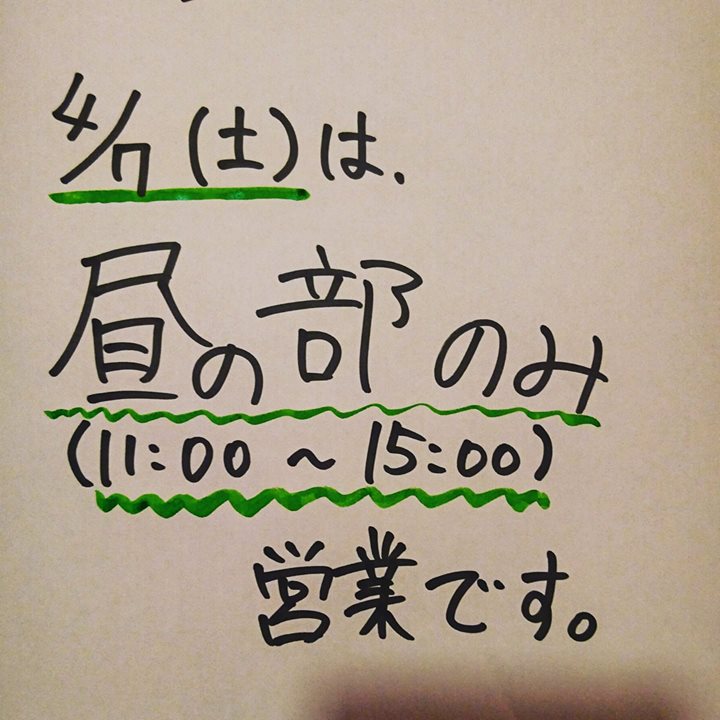 4/7(土)は、
昼の部のみ
(11:00～15:00)
営業です。